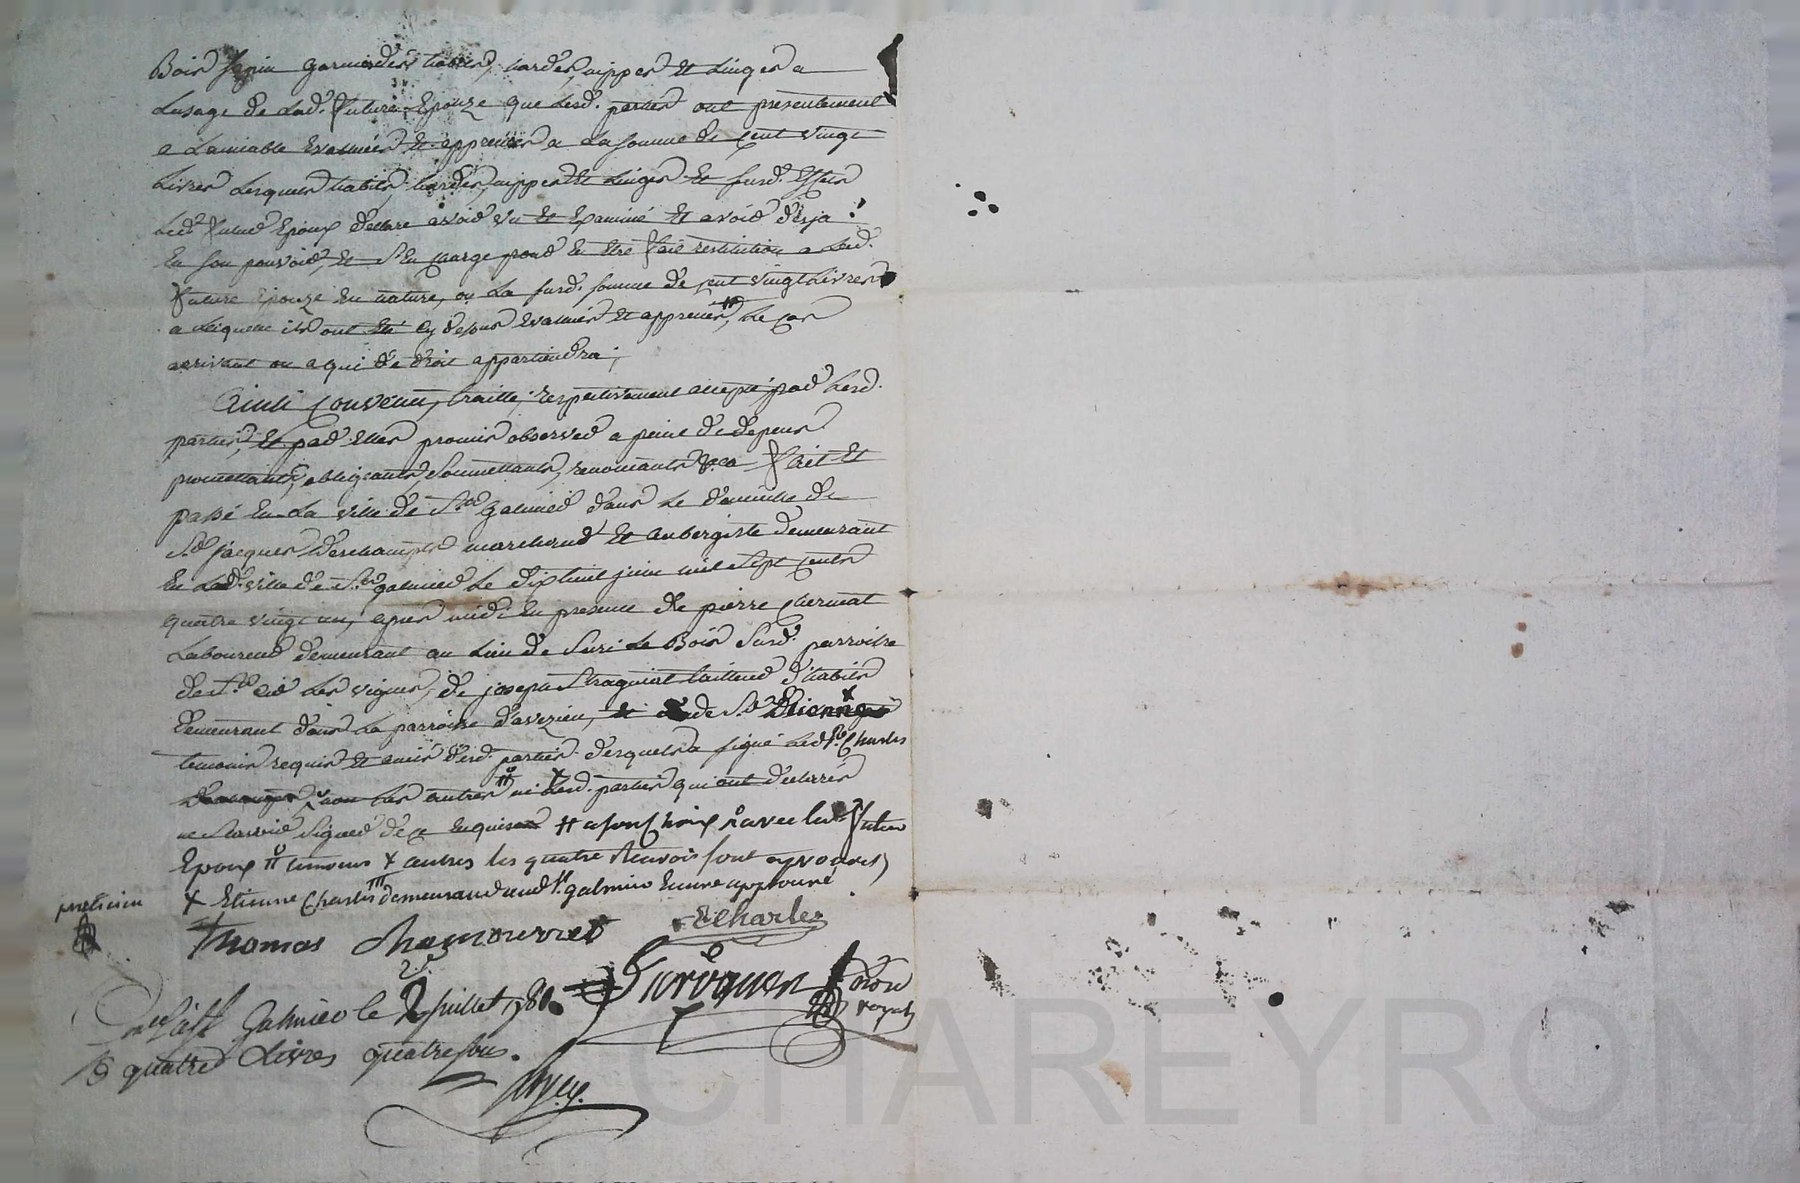 Bois sapin garnie des habits, hardes, nippes et Linges a
Lusage de Lad. future Epouze que Lesd. parties ont presentement
a Lamiable Evalués et appreciés a La somme de Cent vingt
Livres Lesquels habits, hardes, nippes et Linges et susd.
Led. futur Epoux declare avoir vu et Examiné et avoir deja
En son pouvoir, et s'En charge pour En Etre fait restitution a Lad.
future Epouze En nature, ou La susd. somme de Cent vingt Livres
a Laquelle ils ont Eté cy dessus Evalués et appreciés, Le cas
arrivant ou a qui de droit appartiendra;
Ainsi Convenu, traitté, respectivement accepté par Lesd.
parties, et par Elles promis observer a peine de depens
promettants, obligeants, soumettants, renonçants &ca fait et
passé En La ville de St. galmier dans Le domicile de
Sr. jacques Deschamps marchand et aubergiste demeurant
En Lad. ville de St. galmier Le dix huit juin mil sept cents
quatre vingt un, apres midi En presence de pierre
Laboureur demeurant au Lieu de Suri Le Bois susd. parroisse
de St. Cir Les vignes, de joseph tailleur d'habits
demeurant dans La parroisse d'avezieu, et de Sr. Etienne
temoins requis et amis desd. parties desquels a signé Led. Sr. Charles
non Les autres ni Lesd. parties qui ont declarés
ne sçavoir signer de ce Enquis # avec le futur
Epoux # temoins x autres les quatre Renvois sont approuvés
x Etienne Charles demeurant aud. St. galmier Encore approuvé
praticien
Thomas
E Charles
No.re royal
St Galmier le 2 juillet 1781
R quatre Livres quatre sous.
CHAREYRON